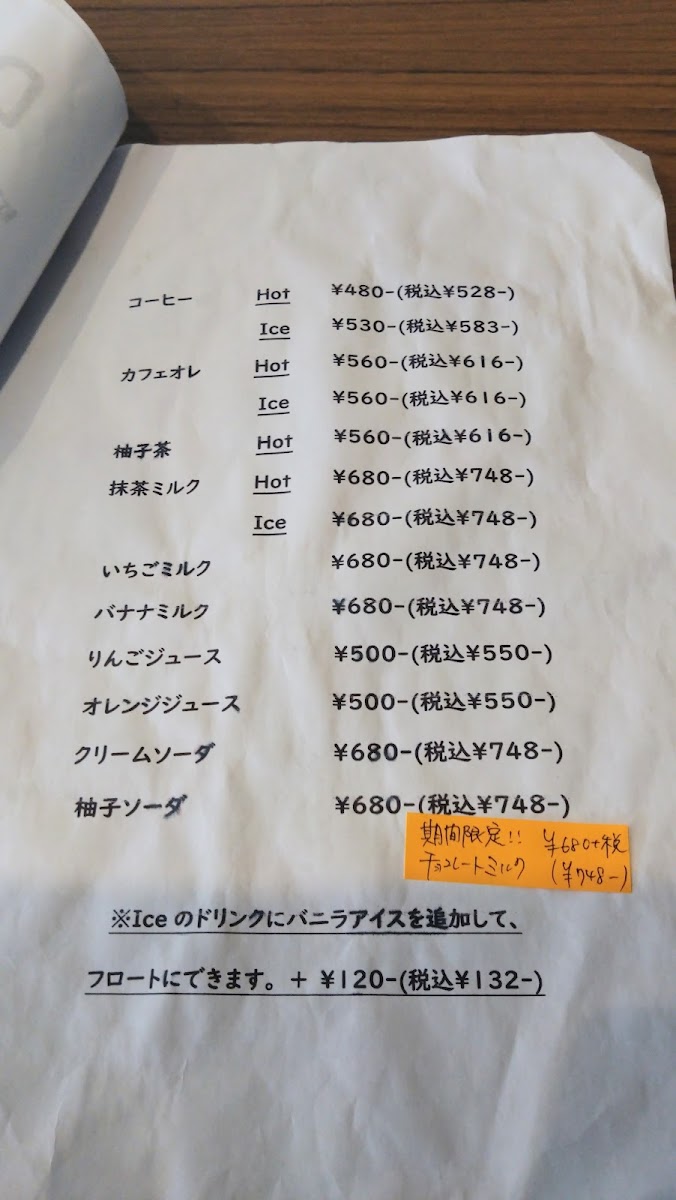 コーヒー Hot ¥480-(税込¥528-)
Ice ¥530-(税込¥583-)
カフェオレ Hot ¥560-(税込¥616-)
Ice ¥560-(税込¥616-)
柚子茶 Hot ¥560-(税込¥616-)
抹茶ミルク Hot ¥680-(税込¥748-)
Ice ¥680-(税込¥748-)
いちごミルク ¥680-(税込¥748-)
バナナミルク ¥680-(税込¥748-)
りんごジュース ¥500-(税込¥550-)
オレンジジュース ¥500-(税込¥550-)
クリームソーダ ¥680-(税込¥748-)
柚子ソーダ ¥680-(税込¥748-)
期間限定!! ¥680+税
チョコレートミルク (¥748-)
※Iceのドリンクにバニラアイスを追加して、
フロートにできます。+ ¥120-(税込¥132-)